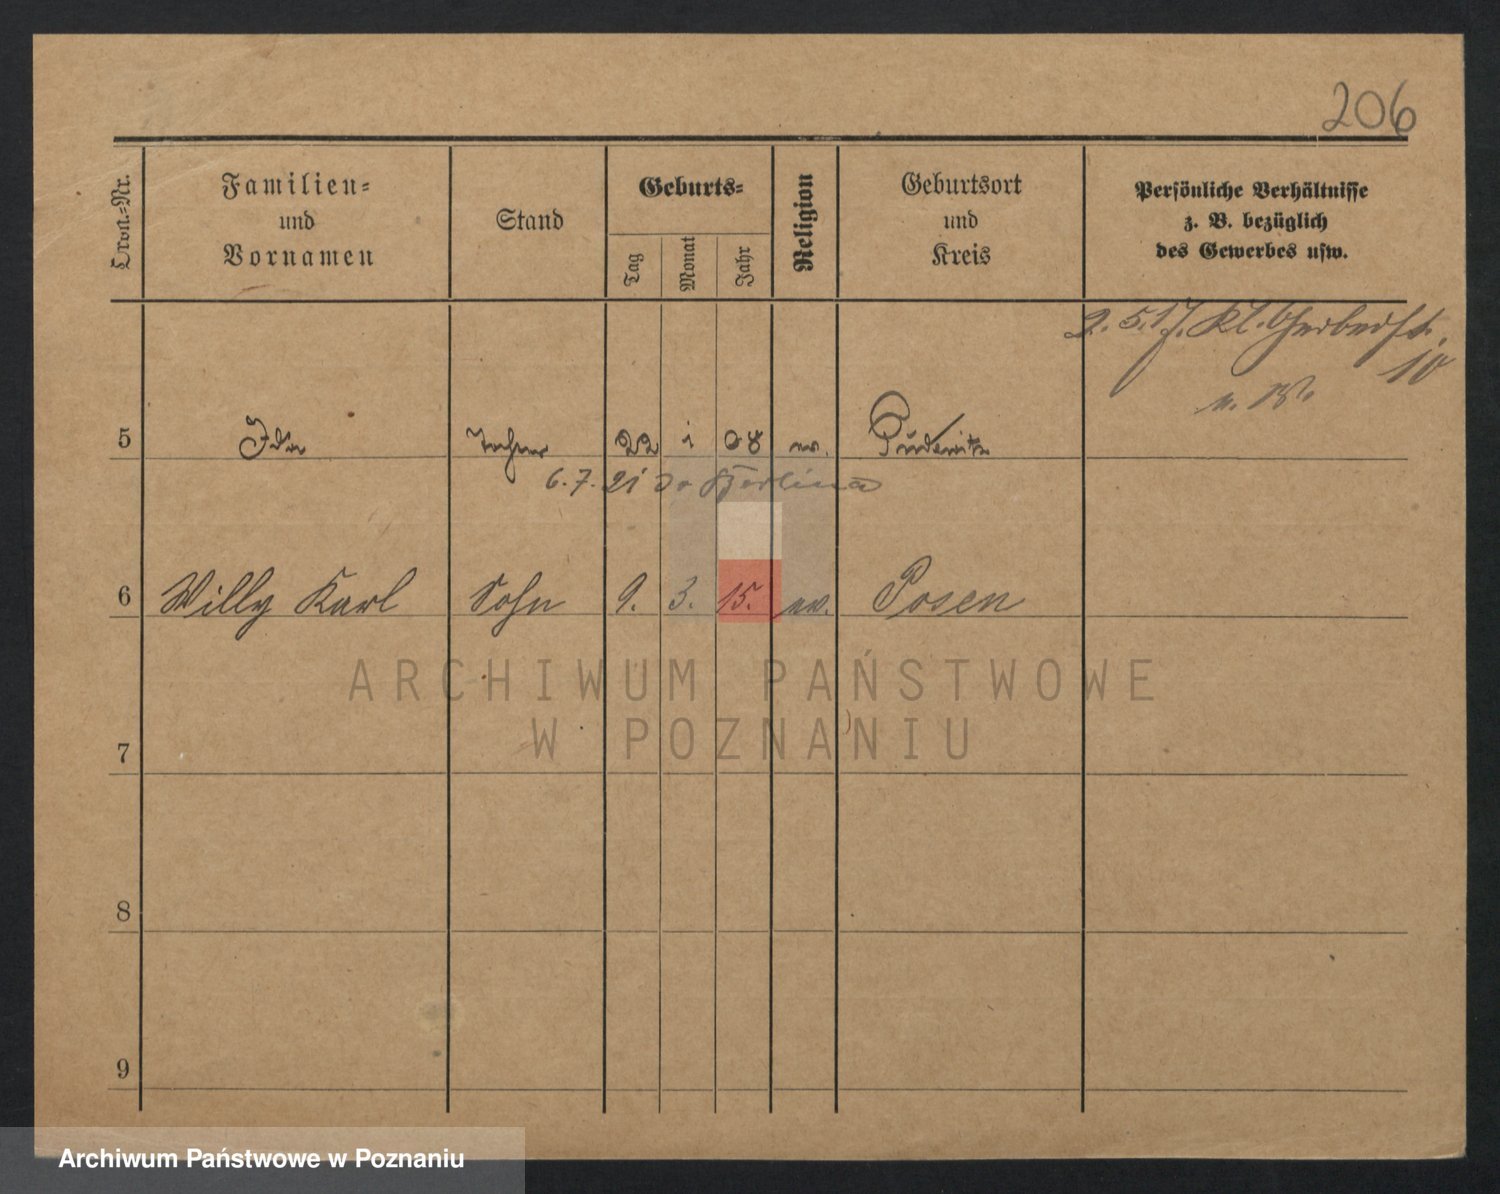 206
Ordn.-Nr.
Familien-
und
Vornamen
Stand
Geburts-
Tag
Monat
Jahr
Religion
Geburtsort
und
Kreis
Persönliche Verhältnisse
z. B. bezüglich
des Gewerbes usw.
2. 5. 17. Kl. Gerberst.
10
5 Ida Tochter 22 1 08 ev. Pudewitz
6. 7. 21
6 Willy Karl Sohn 9. 3. 15. ev. Posen
ARCHIWUM PAŃSTWOWE
W POZNANIU
7
8
9
Archiwum Państwowe w Poznaniu